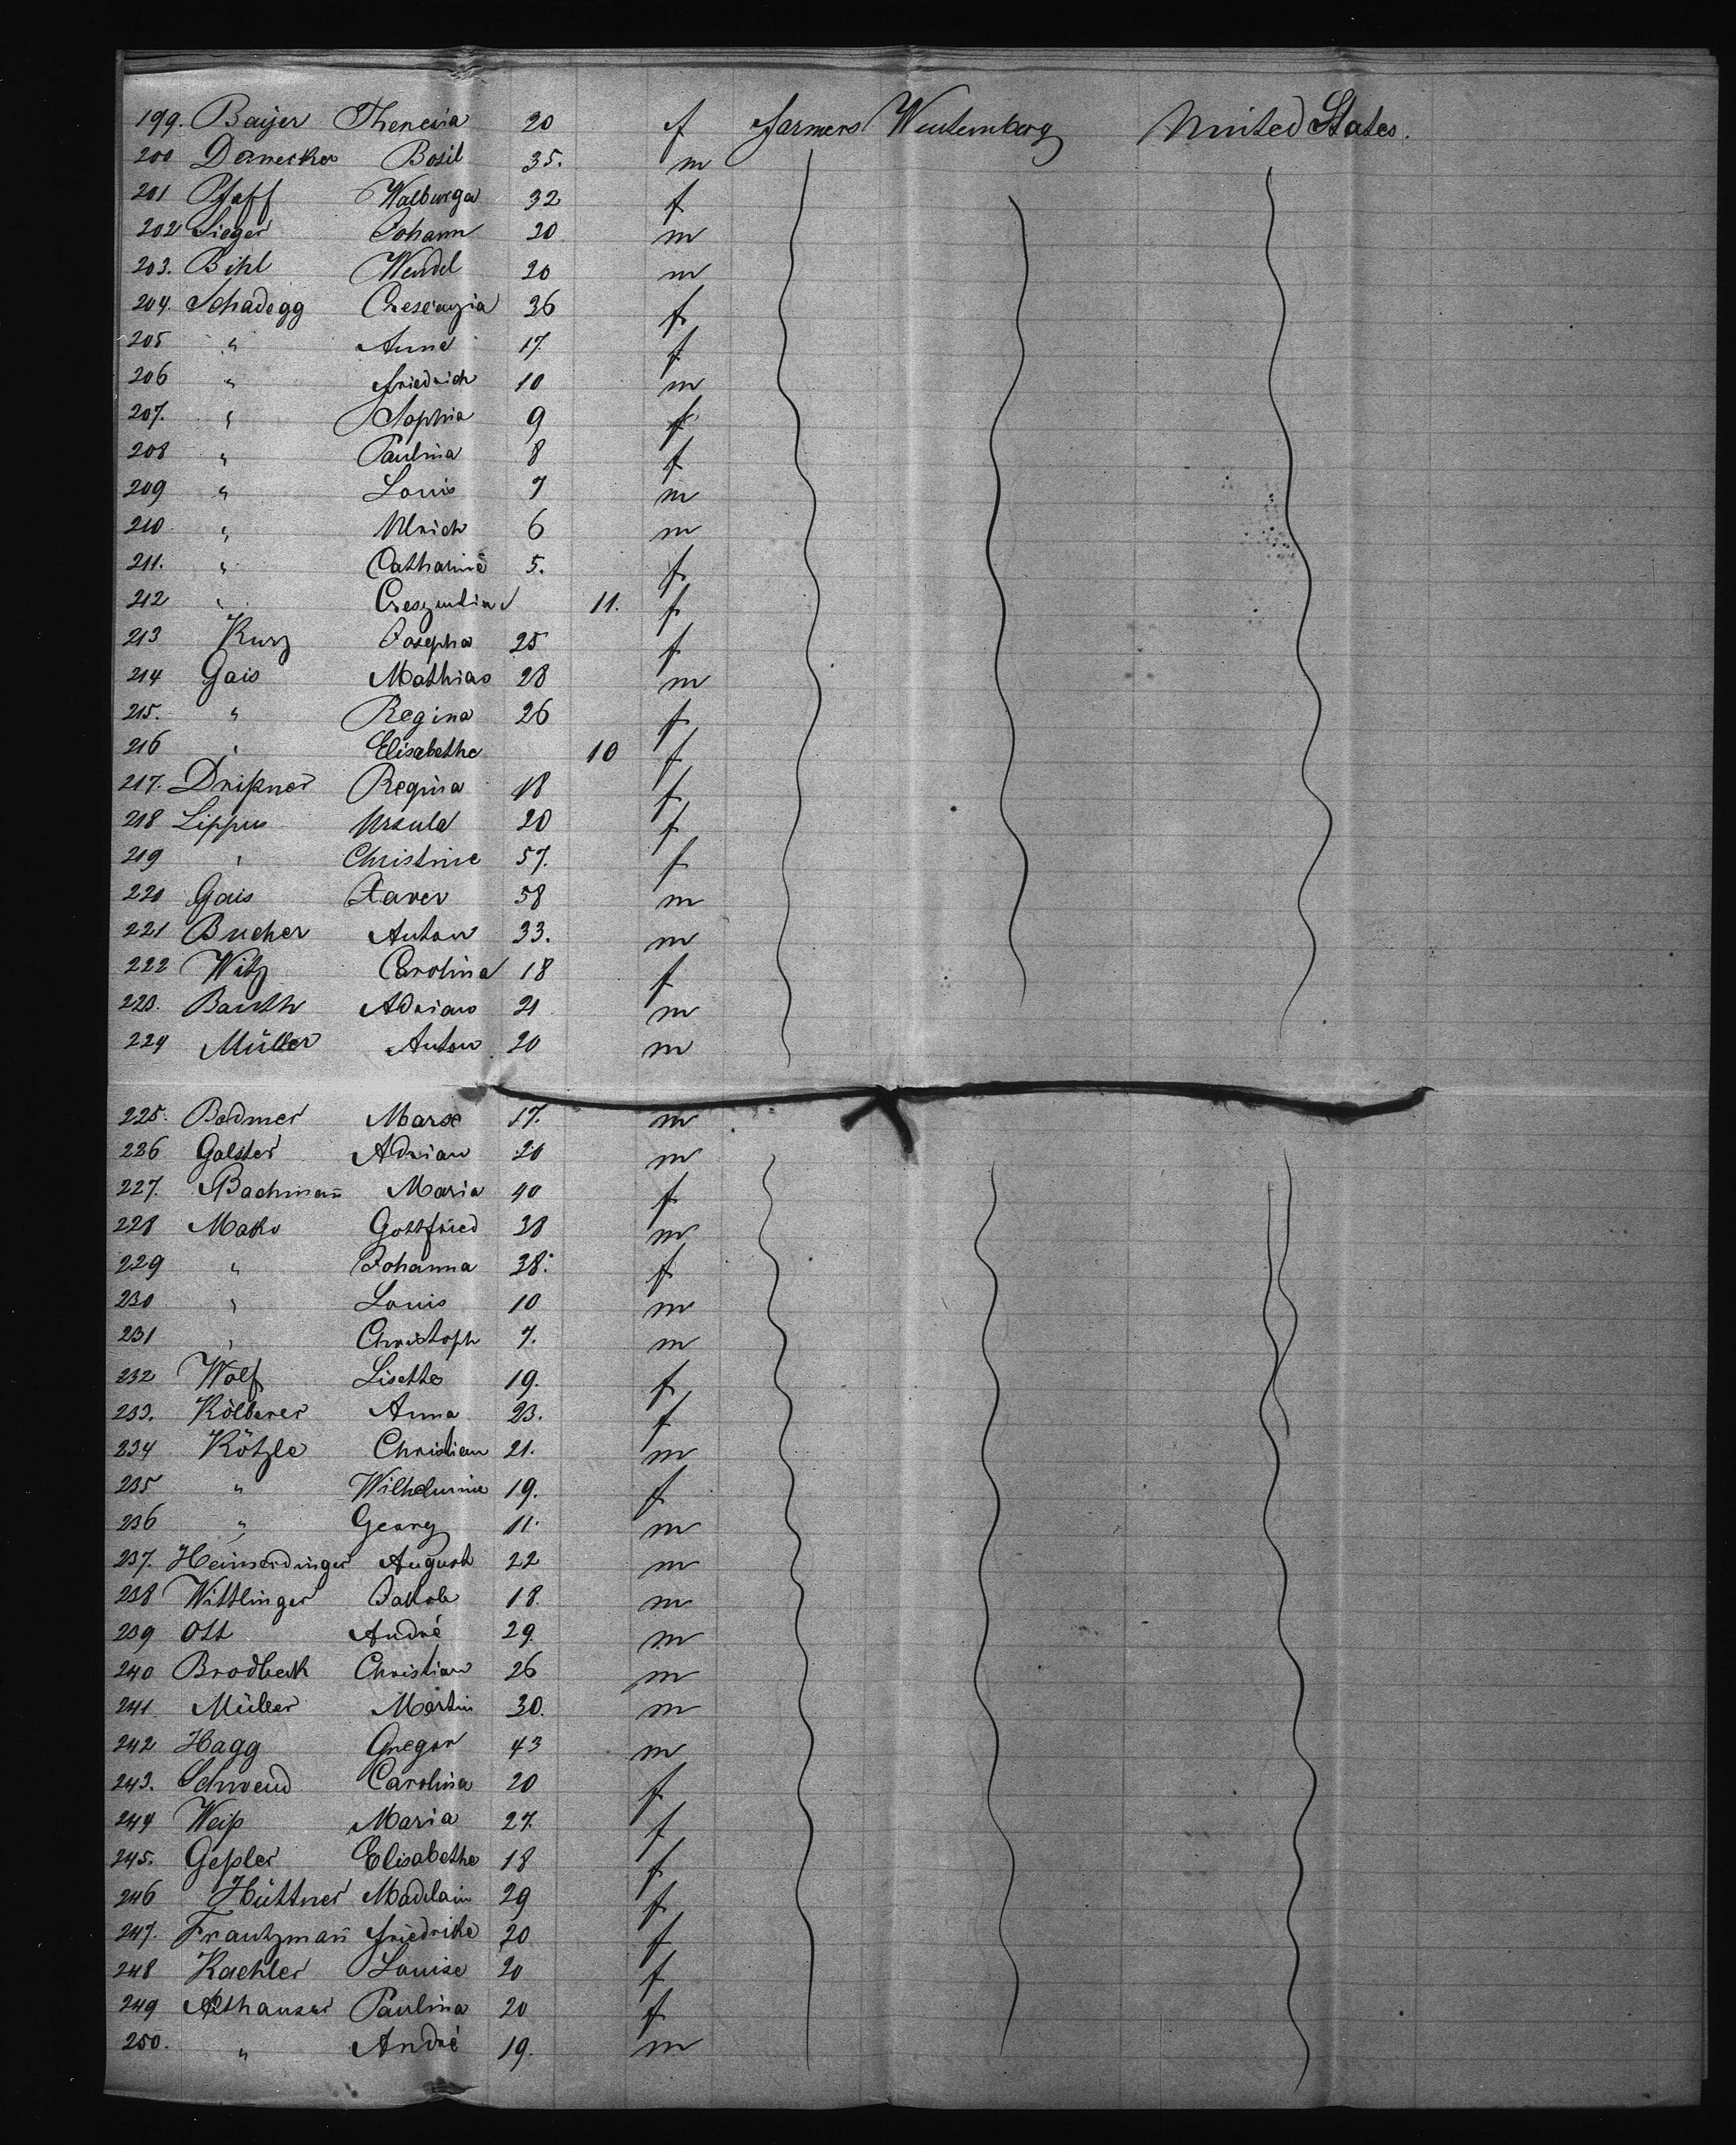 199. Baijer Theresia 20 f farmers Wurtemberg United States.
200 Dernecker Basil 35. m
201 Pfaff Walburga 32 f
202 Sieger Johann 20 m
203. Bihl Wendel 20 m
204. Schadegg Crescenzia 36 f
205 " Anna 17. f
206 " Friedrich 10 m
207. " Sophia 9 f
208 " Paulina 8 f
209 " Louis 7 m
210 " Ulrich 6 m
211. " Catharine 5. f
212 " Creszentia 11. f
213 Kurz Josepha 25 f
214 Gais Mathias 28 m
215. " Regina 26 f
216 " Elisabethe 10 f
217. Drißner Regina 18 f
218 Lippus Ursula 20 f
219 " Christine 57. f
220 Gais Xaver 58 m
221 Bucher Anton 33. m
222 Witz Carolina 18 f
223. Barth Adrian 21 m
224 Müller Anton 20 m
225. Bodmer Marx 17. m
226 Galster Adrian 20 m
227. Bachmañ Maria 40 f
228 Mako Gottfried 38 m
229 " Johanna 38. f
230 " Louis 10 m
231 " Christoph 7. m
232 Wolf Lisette 19. f
233. Kölberer Anna 23. f
234 Kötzle Christian 21. m
235 " Wilhelmine 19. f
236 " Georg 11. m
237. Heimerdinger August 22 m
238 Wittlinger Jakob 18. m
239 Ott André 29. m
240 Brodbeck Christian 26 m
241. Müller Martin 30. m
242 Hagg Gregor 43 m
243. Schwend Carolina 20 f
244 Weiß Maria 27. f
245. Geßler Elisabethe 18 f
246 Hüttner Madlain 29 f
247. Frantzmañ Friedrike 20 f
248 Kaehler Louise 20 f
249 Althauser Paulina 20 f
250. " André 19. m